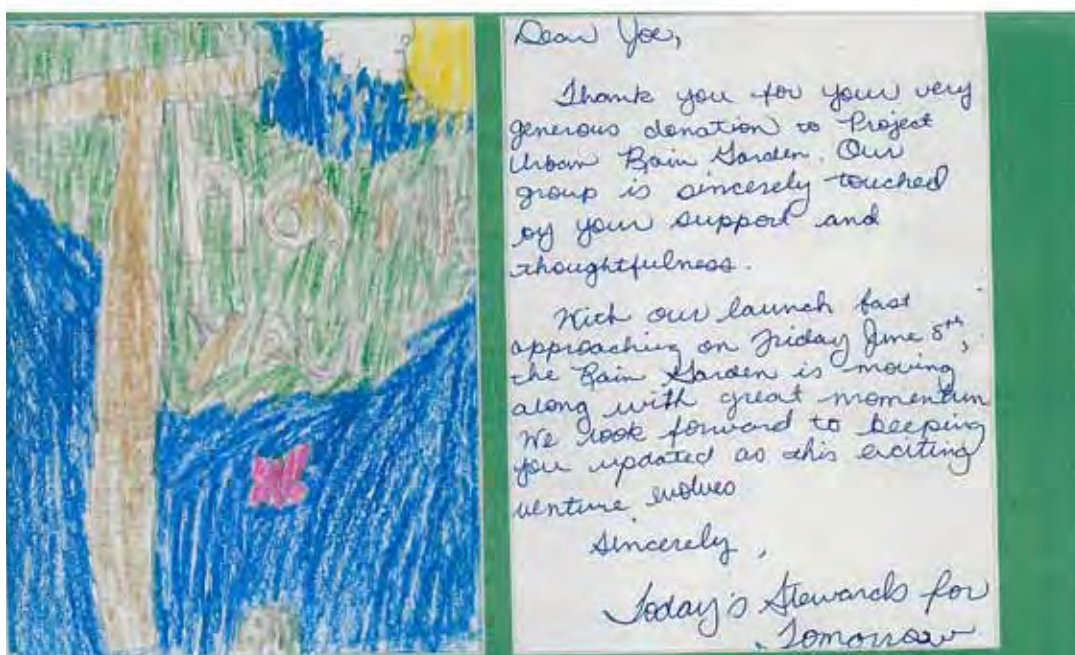 Thank
you
Dear Yoe,
Thank you for your very
generous donation to Project
Urban Rain Garden. Our
group is sincerely touched
by your support and
thoughtfulness.
With our launch fast
approaching on Friday June 8th,
the Rain Garden is moving
along with great momentum
We look forward to keeping
you updated as this exciting
venture evolves
Sincerely,
Today's Stewards for
Tomorrow